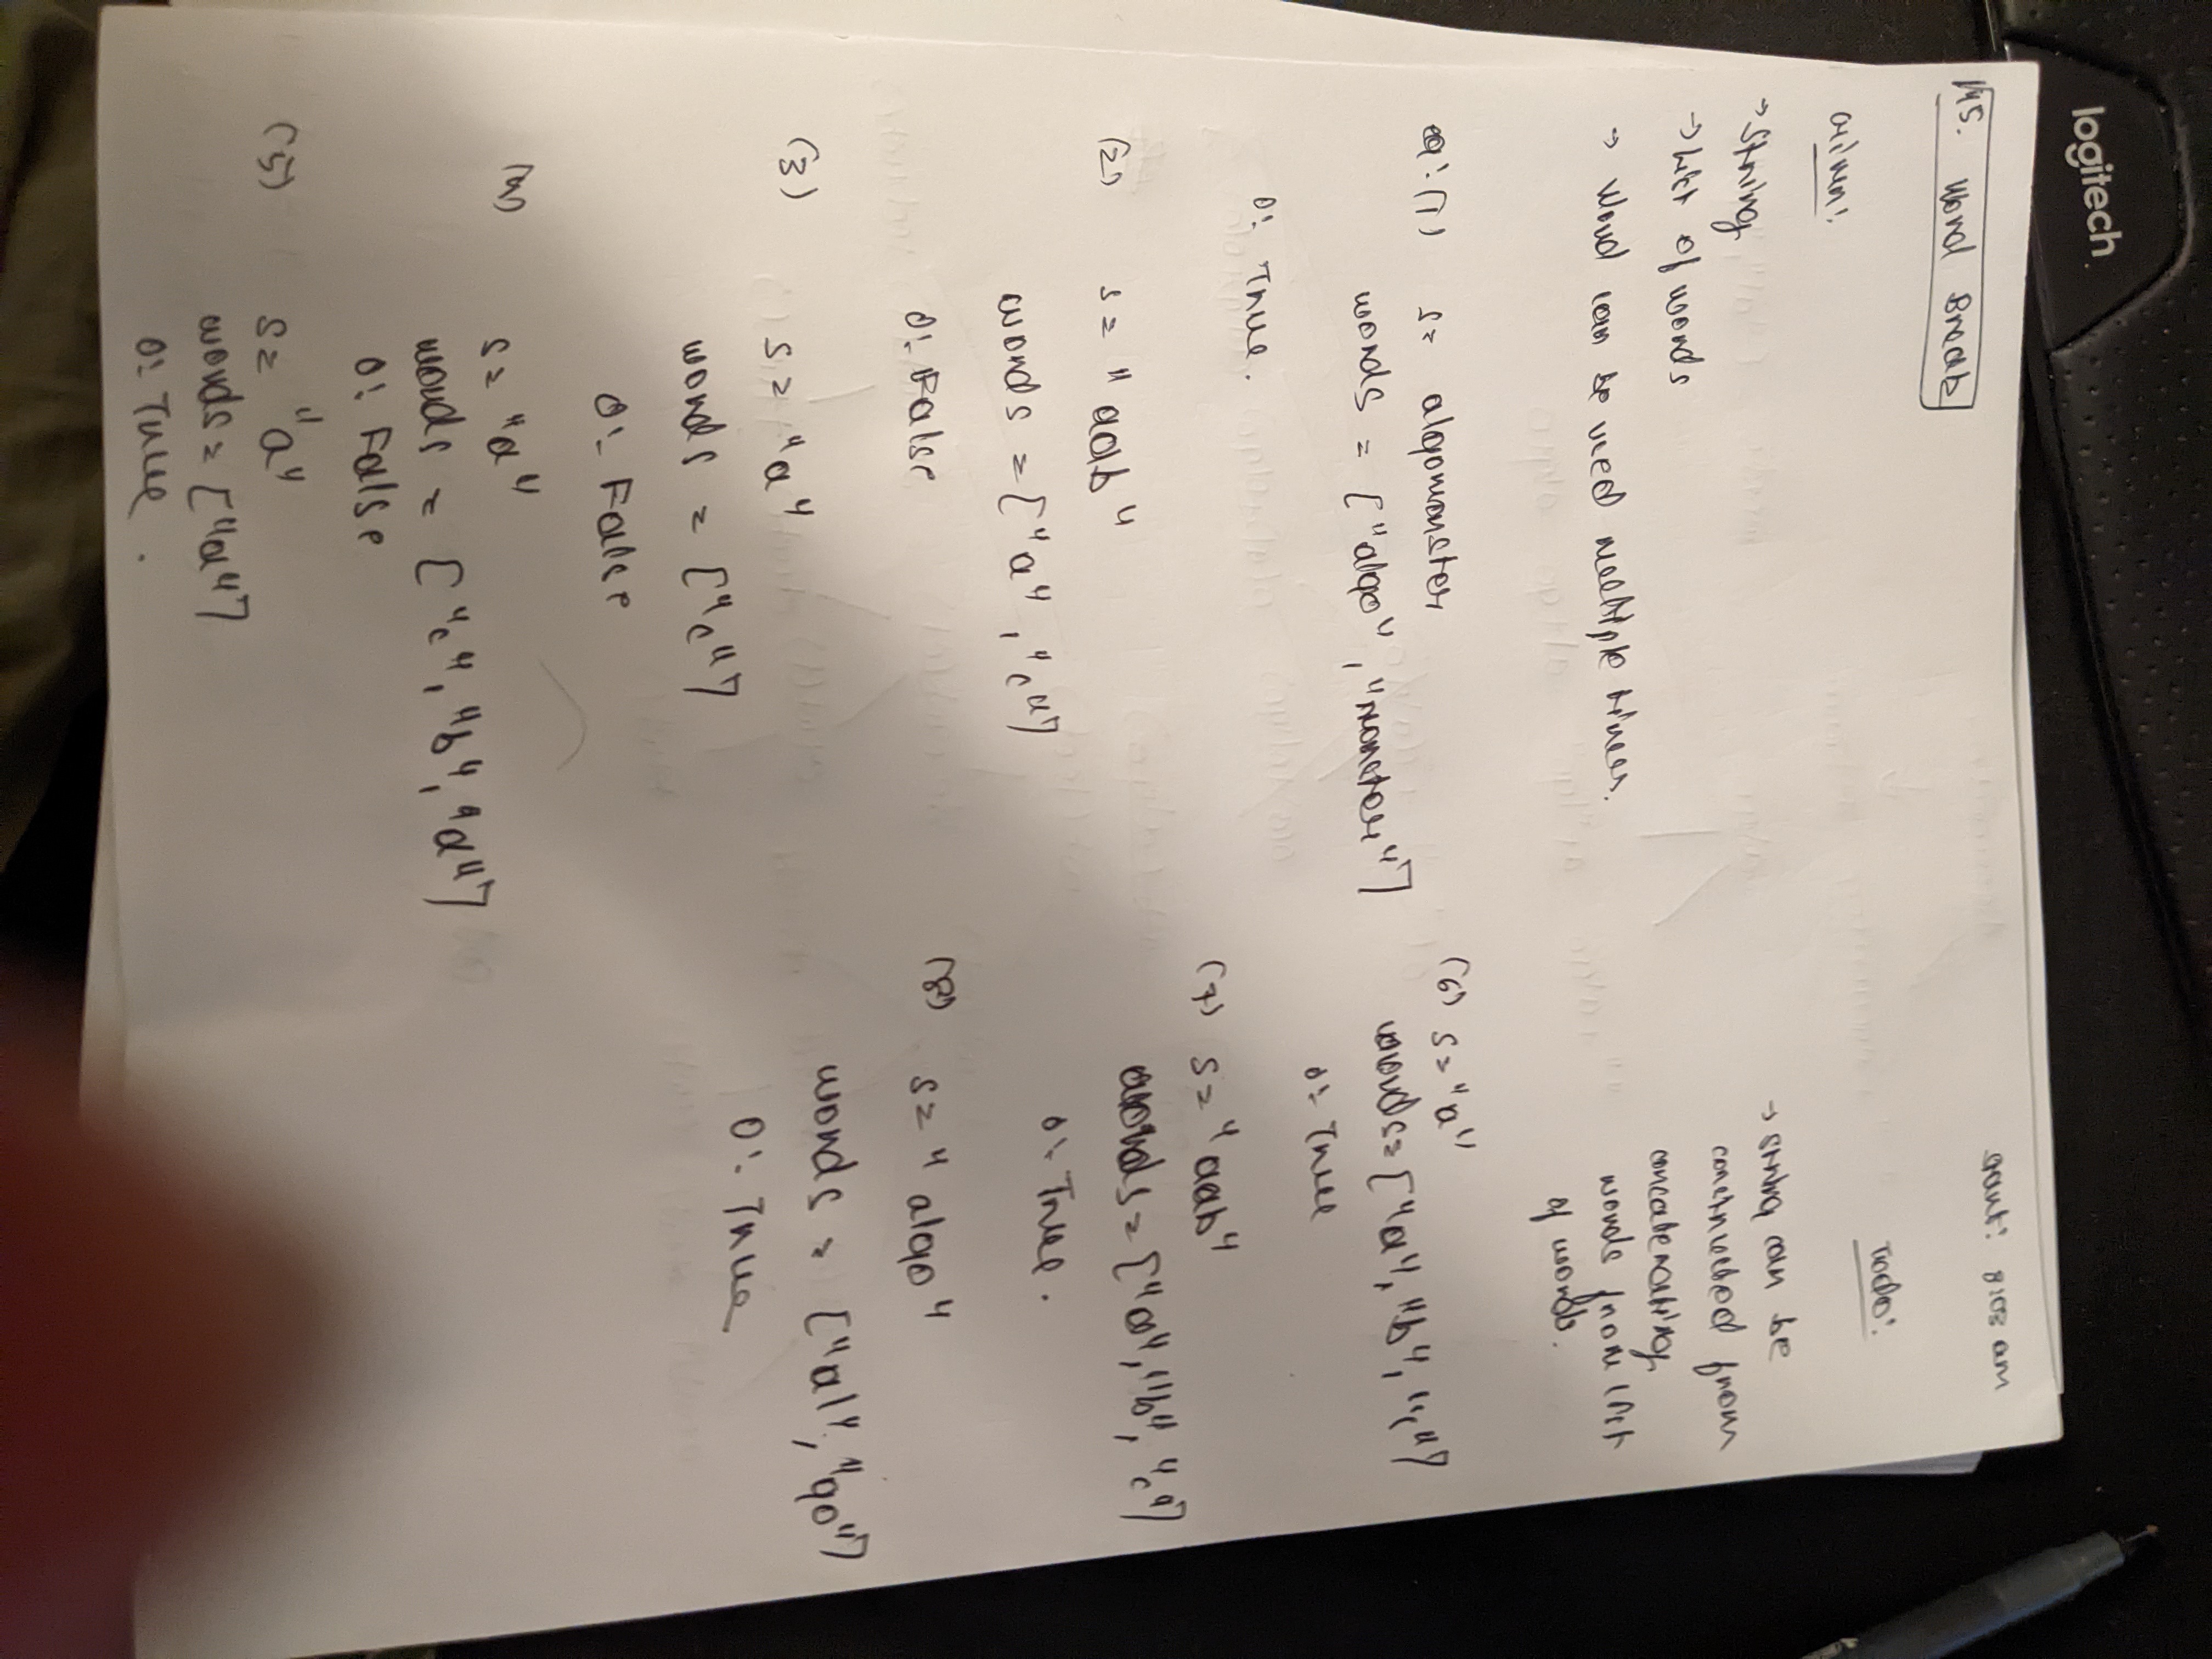 logitech
145. Word Break
start: 8:08 am
Given:
→ string
→ list of words
→ Word can be used multiple times.
Todo:
→ string can be
constructed from
concatenating
words from list
of words.
eg: (1) s= algomonster
words = ["algo", "monster"]
O: True.
(2) s= "aab"
words = ["a", "c"]
O: False
(3) s= "a"
words = ["c"]
O: False
(4)
s= "a"
words = ["c", "b", "a"]
O: False
(5) s= "a"
words= ["a"]
O: True.
(6) s= "a"
words= ["a", "b", "c"]
O: True
(7) s= "aab"
words= ["a", "b", "c"]
O: True.
(8) s= "algo"
words = ["al", "go"]
O: True